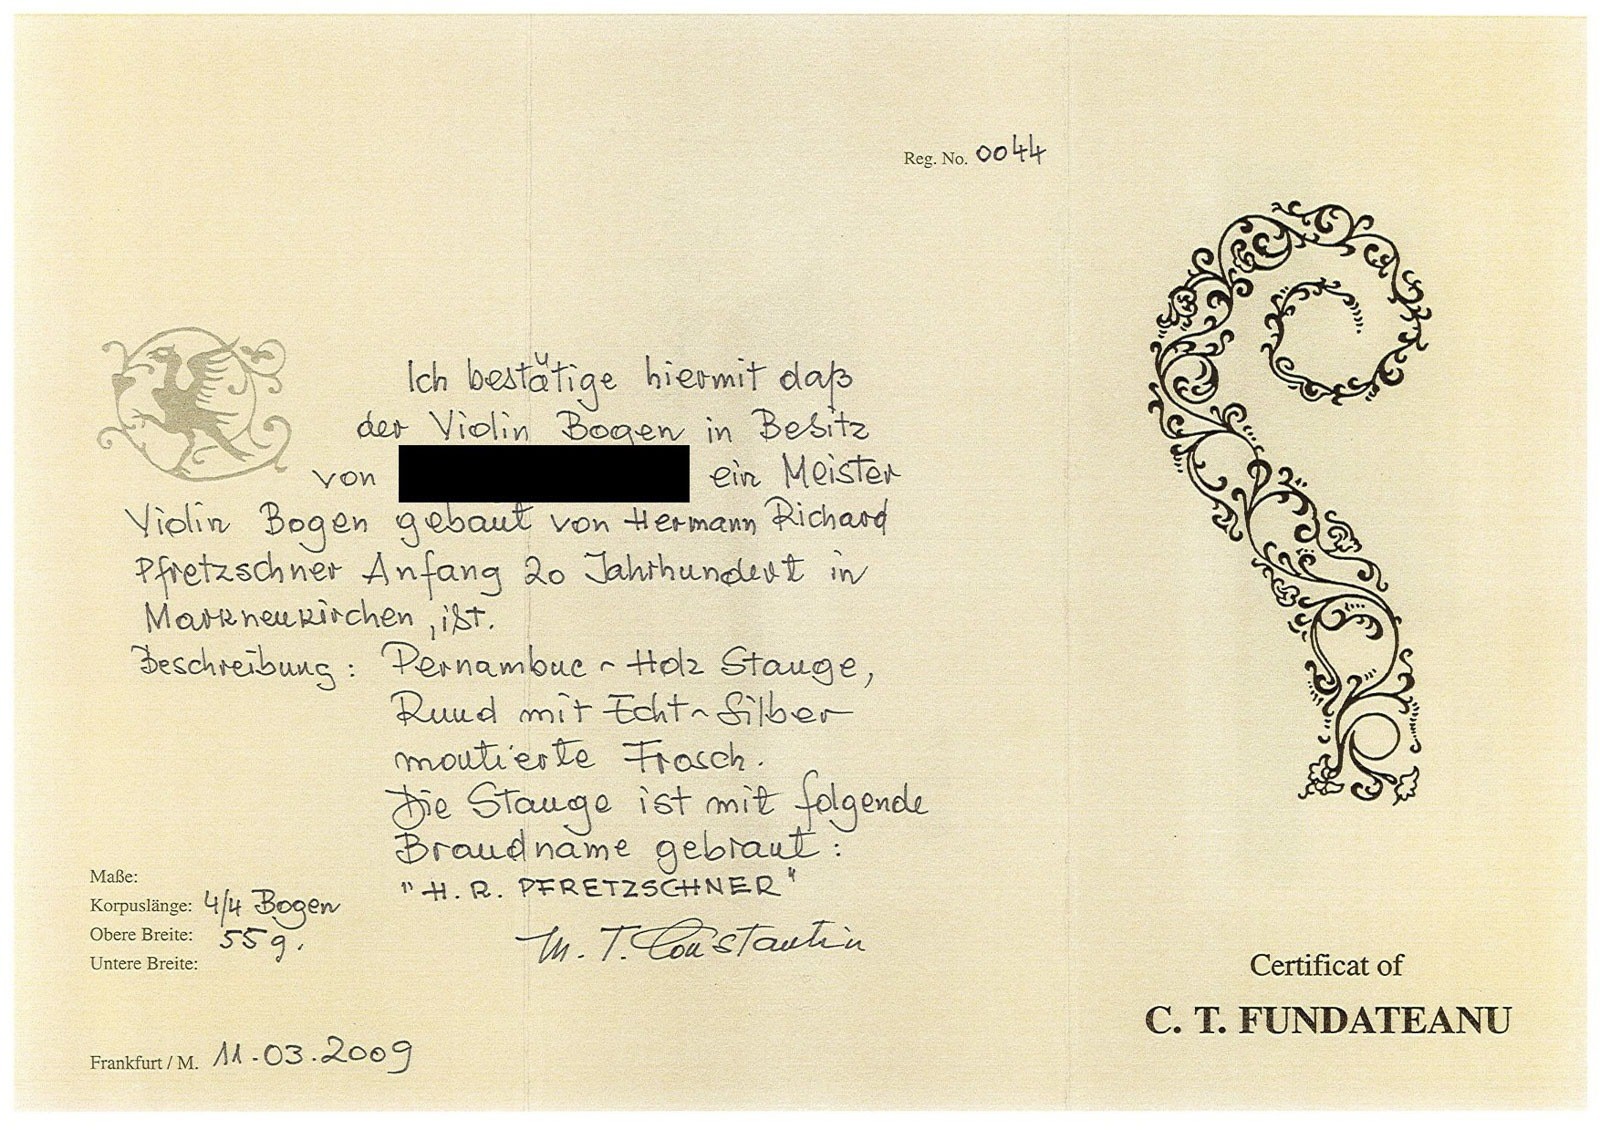 Reg. No. 0044
Ich bestätige hiermit daß
der Violin Bogen in Besitz
von ein Meister
Violin Bogen gebaut von Hermann Richard
Pfretzschner Anfang 20 Jahrhundert in
Markneukirchen, ist.
Beschreibung: Pernambuc-Holz Stange,
Rund mit Echt-Silber
montierte Frosch.
Die Stange ist mit folgende
Brandname gebrant:
"H. R. PFRETZSCHNER"
Maße:
Korpuslänge: 4/4 Bogen
Obere Breite: 55g.
Untere Breite:
M. T. Constantin
Frankfurt / M. 11.03.2009
Certificat of
C. T. FUNDATEANU